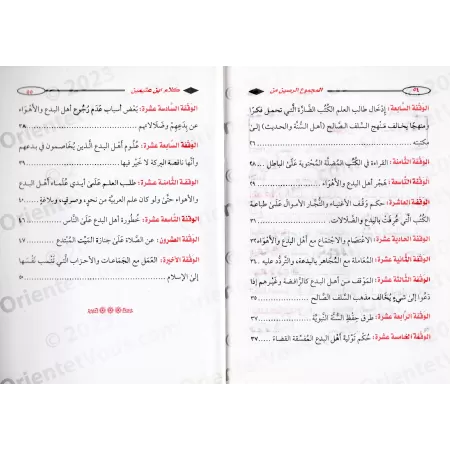 ٥٤ المجموع الرصين من
الوقفة السابعة: إدخال طالب العلم الكتب الضارة التي تحمل فكرًا
ومنهجًا يخالف منهج السلف الصالح (أهل السنة والحديث) إلى
مكتبته ٢٦
الوقفة الثامنة: القراءة في الكتب المضلة المحتوية على الباطل ٢٨
الوقفة التاسعة: هجر أهل البدع والأهواء ٢٩
الوقفة العاشرة: حكم وقف الأغنياء والتجار الأموال على طباعة
الكتب التي عُرفت بالبدع والضلالات
الوقفة الحادية عشرة: الاعتصام والاجتماع مع أهل البدع والأهواء ٣٢
الوقفة الثانية عشرة: المعاملة مع المجاهر بالبدعة، والتردُّد عليه
الوقفة الثالثة عشرة: الموقف من أهل البدع كالرافضة وغيرهم إذا
دعوا إلى شيءٍ يُخالف مذهب السلف الصالح ٣٥
الوقفة الرابعة عشرة: طرق حفظ السنة النبوية ٣٧
الوقفة الخامسة عشرة: حكم تولية أهل البدع المفسقة القضاة ٣٧
كلام ابن عثيمين ٥٥
الوقفة السادسة عشرة: بعض أسباب عدم رجوع أهل البدع والأهواء
عن بدعهم وضلالاتهم ٣٨
الوقفة السابعة عشرة: علوم أهل البدع الذين يخاصمون في بدعهم
وأنها ناقصة البركة لا خير فيها ٣٩
الوقفة الثامنة عشرة: طلب العلم على أيدي علماء أهل البدع
والأهواء حتى ولو كان علم العربية من نحوٍ وصرفٍ وبلاغةٍ
الوقفة التاسعة عشرة: خطورة أهل البدع على الناس
الوقفة العشرون: عن الصلاة على جنازة الميت المبتدع ٤٧
الوقفة الأخيرة: العمل مع الجماعات والأحزاب التي تنسب نفسها
إلى الإسلام
© 2023
OrientetVous